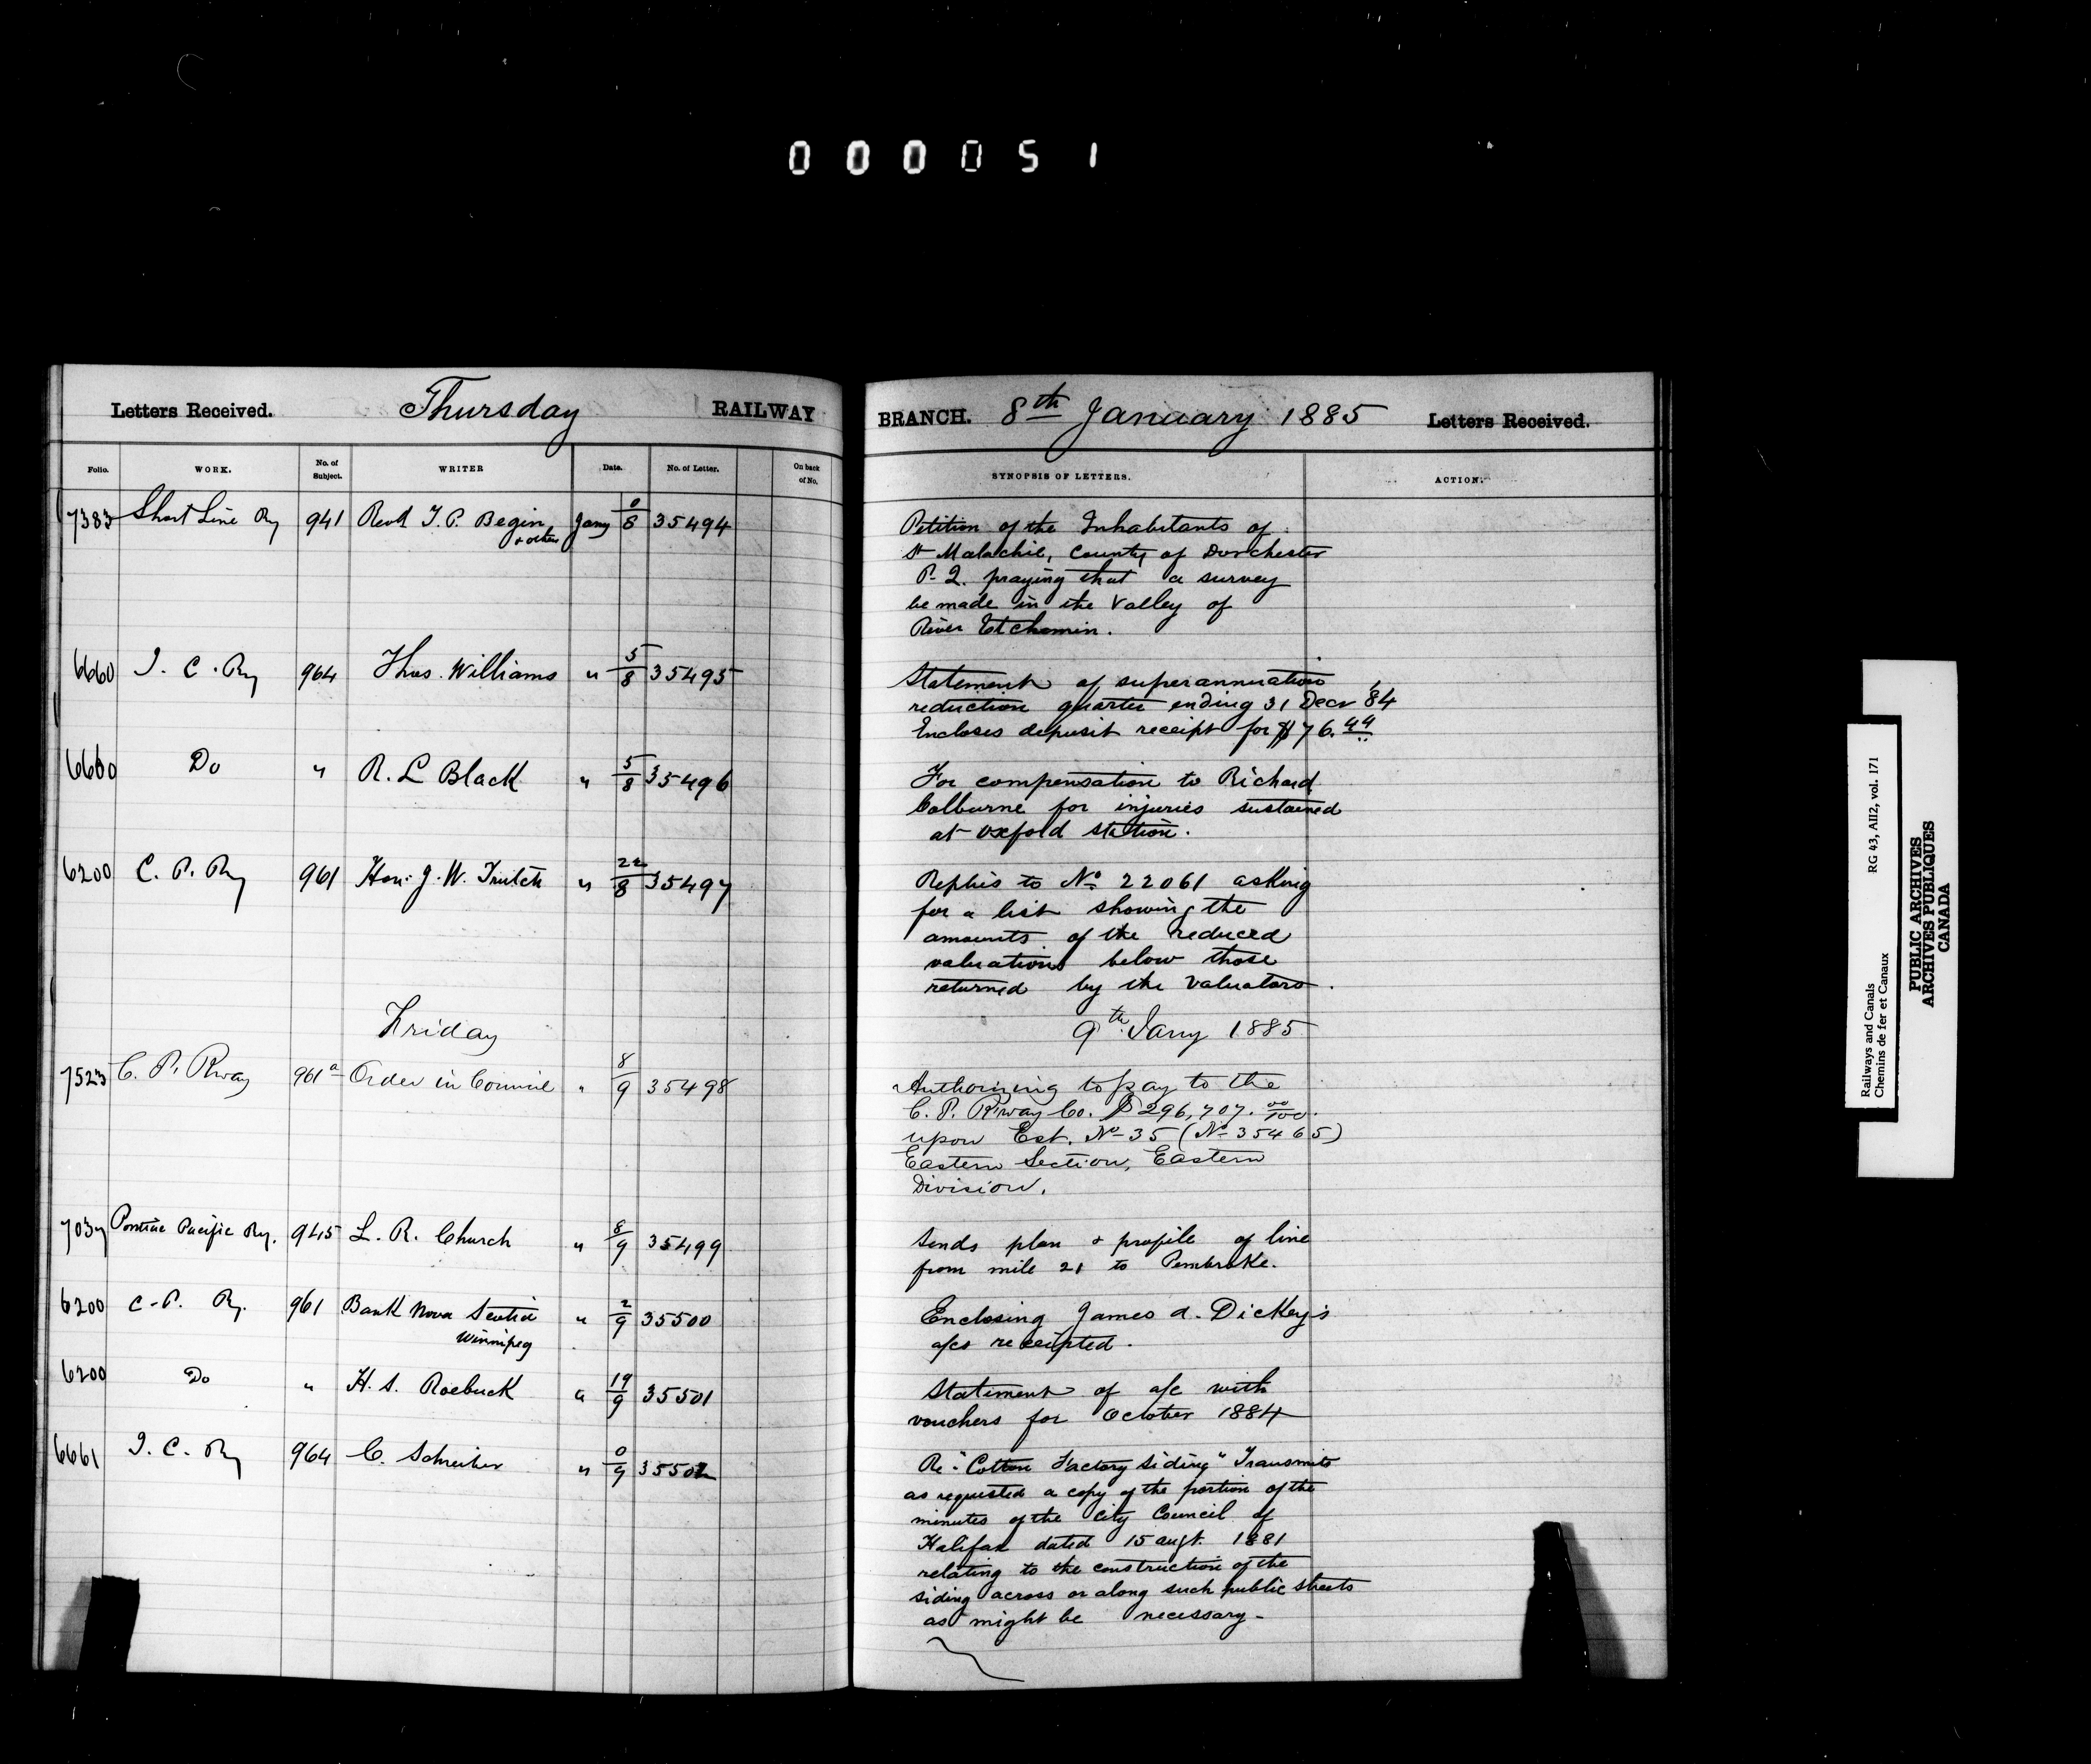 000051
Letters Received. Thursday RAILWAY BRANCH. 8th January 1885 Letters Received.
Folio. WORK. No. of Subject. WRITER Date. No. of Letter. On back of No. SYNOPSIS OF LETTERS. ACTION.
7383 Short Line Ry 941 Revd T. P. Begin Jany 0/8 35494 Petition of the Inhabitants of
+ others St Malachie, County of Dorchester
P. Q. praying that a survey
be made in the Valley of
River Etchemin.
6660 I. C. Ry 964 Thos. Williams " 5/8 35495 Statement of superannuation
reduction quarter ending 31 Decr '84
Encloses deposit receipt for $76.44
6660 Do " R. L Black " 5/8 35496 For compensation to Richard
Colburne for injuries sustained
at Oxford Station.
6200 C. P. Ry 961 Hon. J. W. Trutch " 22/8 35497 Replies to No 22061 asking
for a list showing the
amounts of the reduced
valuations below those
returned by the valuators.
Friday 9th Jany 1885
7523 C. P. Rway 961a Order in Council " 8/9 35498 Authorizing to pay to the
C. P. Rway Co. $296,707. 00/100.
upon Est. No 35 (No 35465)
Eastern Section, Eastern
Division.
7037 Pontiac Pacific Ry. 945 L. R. Church " 8/9 35499 Sends plan & profile of line
from mile 21 to Pembroke.
6200 C. P. Ry. 961 Bank Nova Scotia " 2/9 35500 Enclosing James A. Dickey's
Winnipeg a/cs receipted.
6200 Do " H. S. Roebuck " 19/9 35501 Statement of a/c with
vouchers for October 1884
6661 I. C. Ry 964 C. Schreiber " 0/9 35502 Re "Cotton Factory Siding" Transmits
as requested a copy of the portion of the
minutes of the City Council of
Halifax dated 15 augt. 1881
relating to the construction of the
siding across or along such public streets
as might be necessary -
Railways and Canals RG 43, AII2, vol. 171
Chemins de fer et Canaux
PUBLIC ARCHIVES
ARCHIVES PUBLIQUES
CANADA